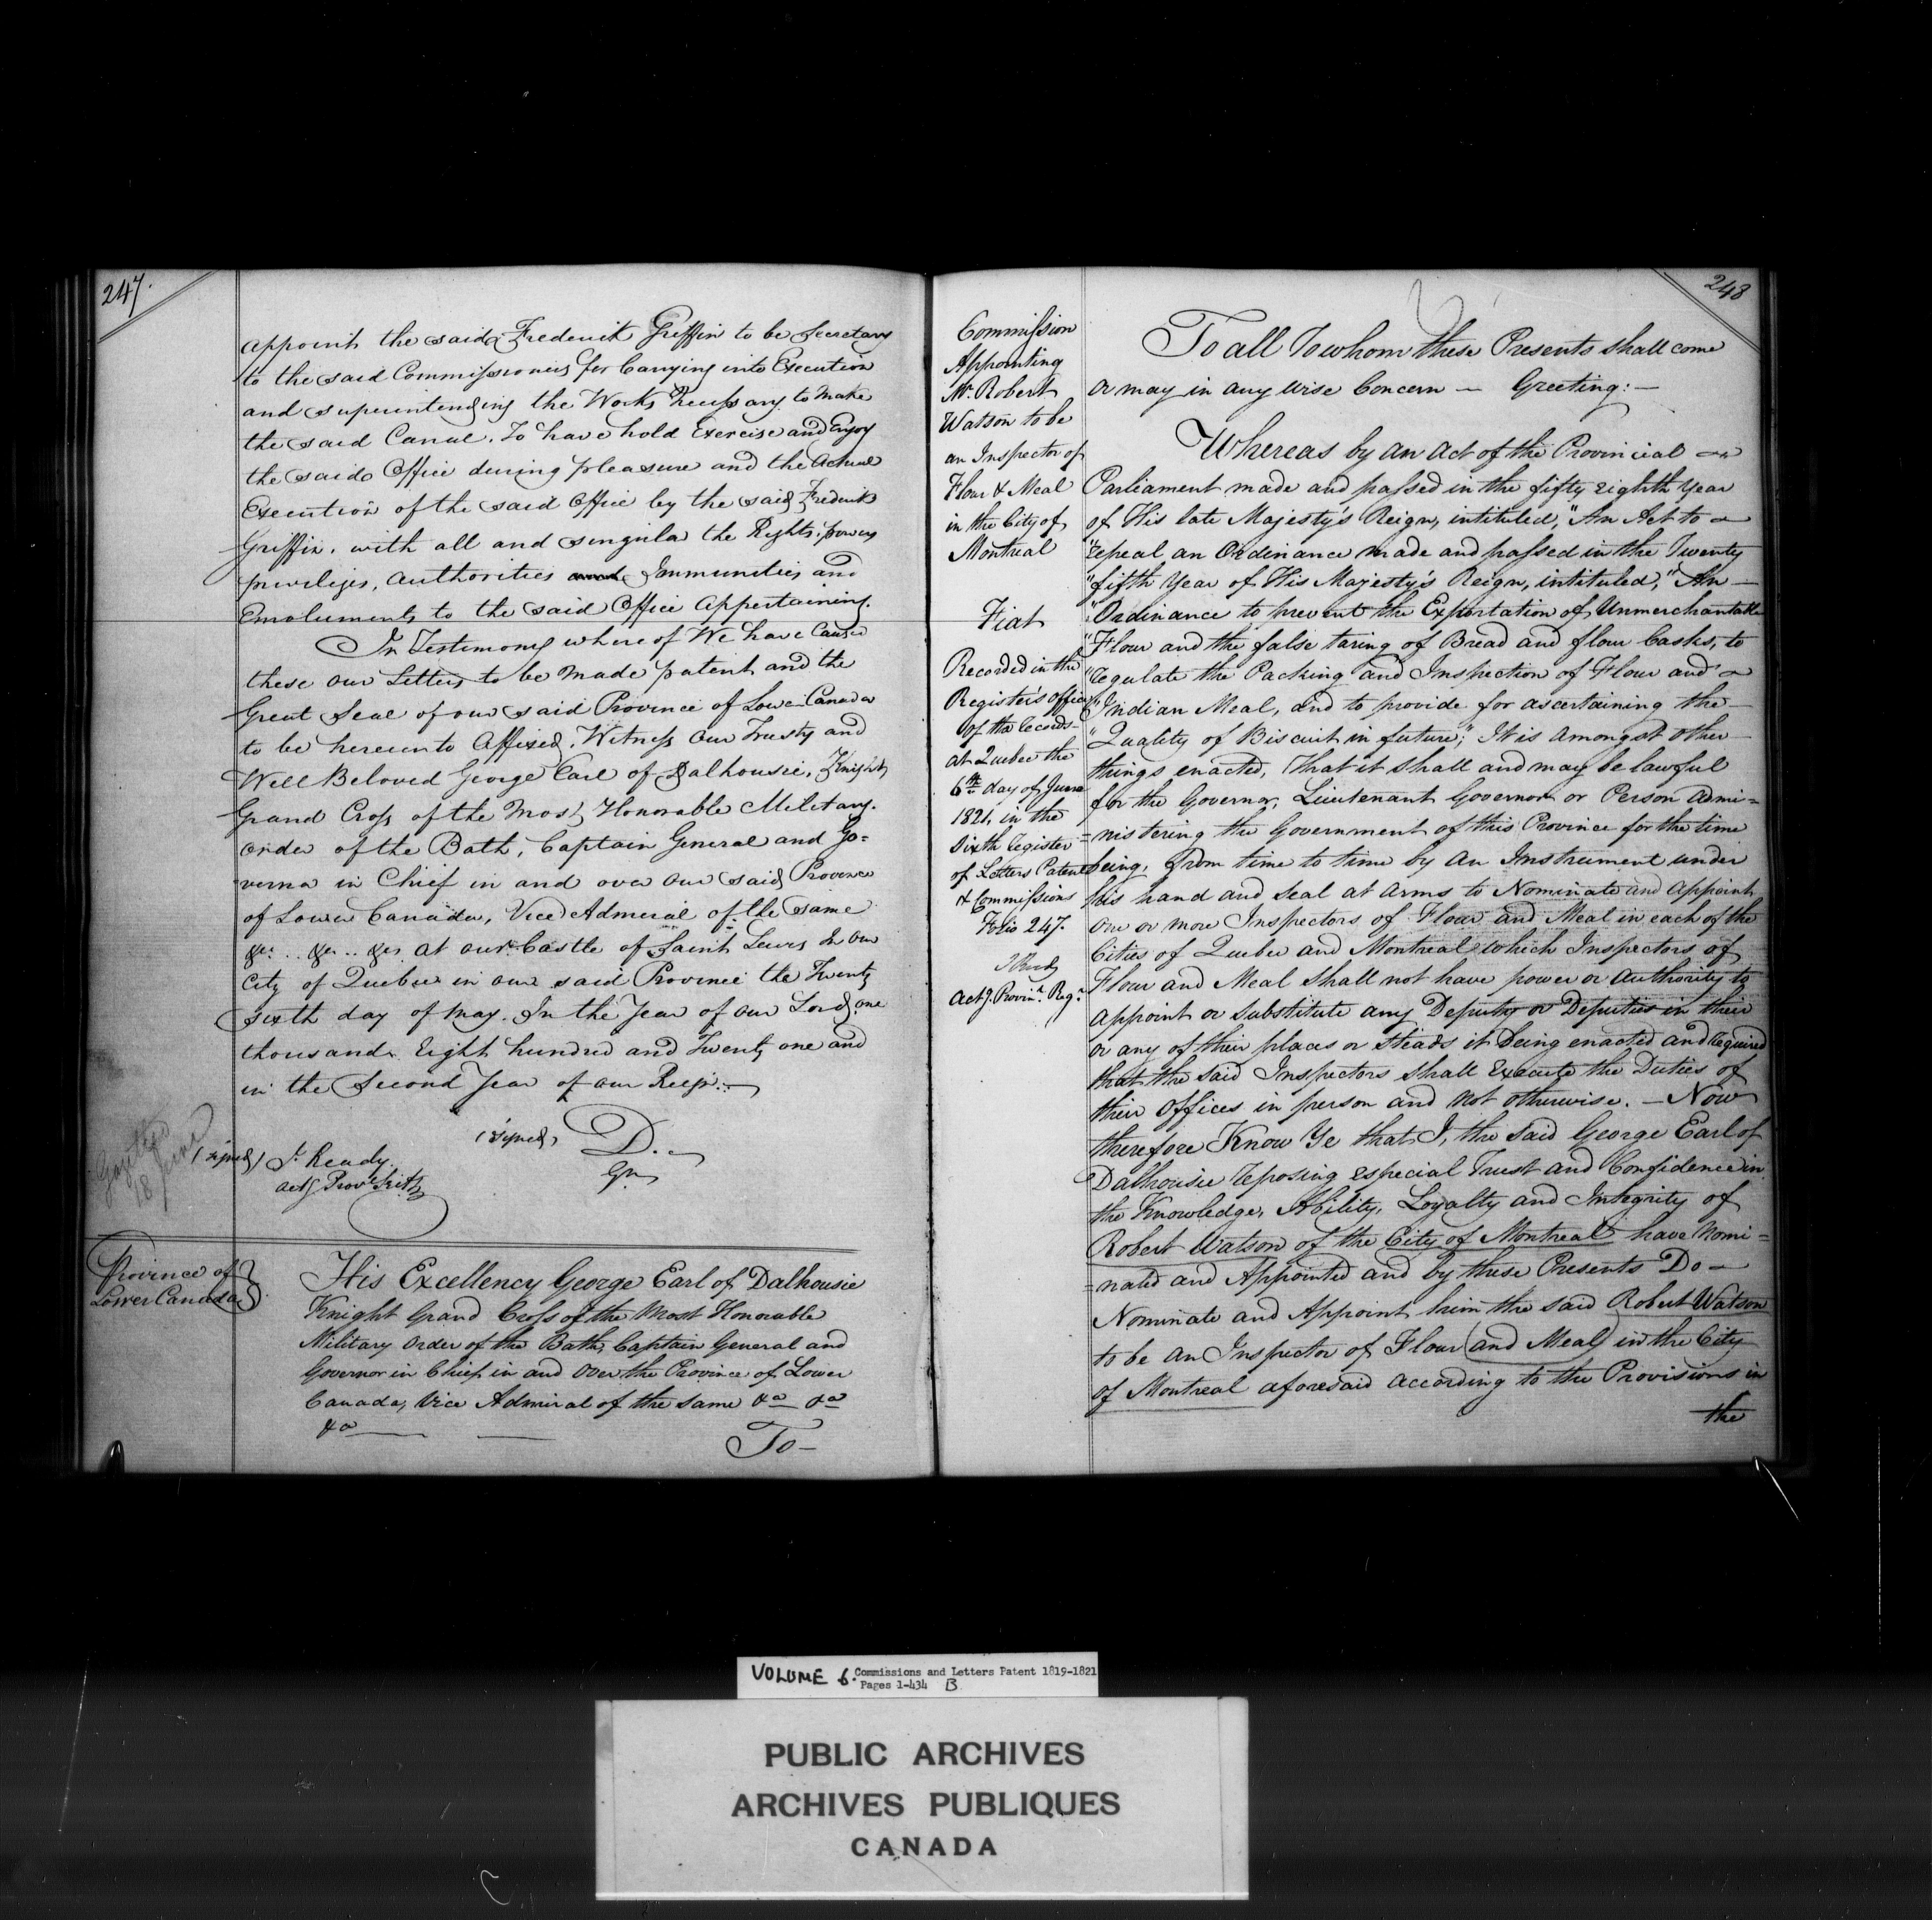 247.
appoint the said Frederick Griffin to be Secretary
to the said Commissioners for Carrying into Execution
and superintending the Works Necessary to Make
the said Canal. To have hold Exercise and Enjoy
the said Office during pleasure and the Actual
Execution of the said Office by the said Frederick
Griffin. with all and singular the Rights, powers
privileges, Authorities and Immunities and
Emoluments to the said Office Appertaining.
In Testimony whereof We have Caused
these our Letters to be Made patent and the
Great Seal of our said Province of Lower Canada
to be hereunto Affixed. Witness Our Trusty and
Well Beloved George Earl of Dalhousie, Knight
Grand Cross of the Most Honorable Military.
Order of the Bath, Captain General and Go=
vernor in Chief in and over Our said Province
of Lower Canada, Vice Admiral of the same
&c. .. &c .. &c at our Castle of Saint Lewis In our
City of Quebec in our said Province the Twenty
sixth day of May. In the Year of our Lord one
thousand Eight hundred and Twenty one and
in the Second Year of our Reign.
(signed) D.
Gr
(signed) J. Ready
Actg Prov. Secrty
Gazetted
18 June
Province of
Lower Canada
His Excellency George Earl of Dalhousie
Knight Grand Cross of the Most Honorable
Military Order of the Bath, Captain General and
Governor in Chief in and over the Province of Lower
Canada, Vice Admiral of the same &a &a
&a
To
248
Commission
Appointing
Mr. Robert
Watson to be
an Inspector of
Flour & Meal
in the City of
Montreal
Fiat
Recorded in the
Register's office
of the Records
at Quebec the
6th day of June
1821, in the
Sixth Register
of Letters Patent
& Commissions
Folio 247.
J Ready
Actg. Provinl. Regr.
To all To whom these Presents shall come
or may in any wise Concern — Greeting: —
Whereas by an Act of the Provincial
Parliament made and passed in the fifty eighth Year
of His late Majesty's Reign, intituled, "An Act to
"repeal an Ordinance made and passed in the Twenty
"fifth Year of His Majesty's Reign, intituled, "An —
"Ordinance to prevent the Exportation of Unmerchantable
"Flour and the false taring of Bread and flour Casks, to
"regulate the Packing and Inspection of Flour and
"Indian Meal, and to provide for ascertaining the —
"Quality of Biscuit in future;" It is amongst other
things enacted, that it shall and may be lawful
for the Governor, Lieutenant Governor or Person Admi=
=nistering the Government of this Province for the time
being, from time to time by an Instrument under
his hand and Seal at Arms to Nominate and Appoint
one or more Inspectors of Flour and Meal in each of the
Cities of Quebec and Montreal which Inspectors of
Flour and Meal shall not have power or authority to
appoint or substitute any Deputy or Deputies in their
or any of their places or steads it being enacted and required
that the said Inspectors shall Execute the Duties of
their Offices in person and not otherwise. — Now
therefore Know Ye that I, the said George Earl of
Dalhousie reposing especial Trust and Confidence in
the Knowledge, Ability, Loyalty and Integrity of
Robert Watson of the City of Montreal have Nomi=
=nated and Appointed and by these Presents Do —
Nominate and Appoint him the said Robert Watson
to be an Inspector of Flour (and Meal) in the City
of Montreal aforesaid according to the Provisions in
the
VOLUME 6. Commissions and Letters Patent 1819-1821
Pages 1-434 B
PUBLIC ARCHIVES
ARCHIVES PUBLIQUES
CANADA